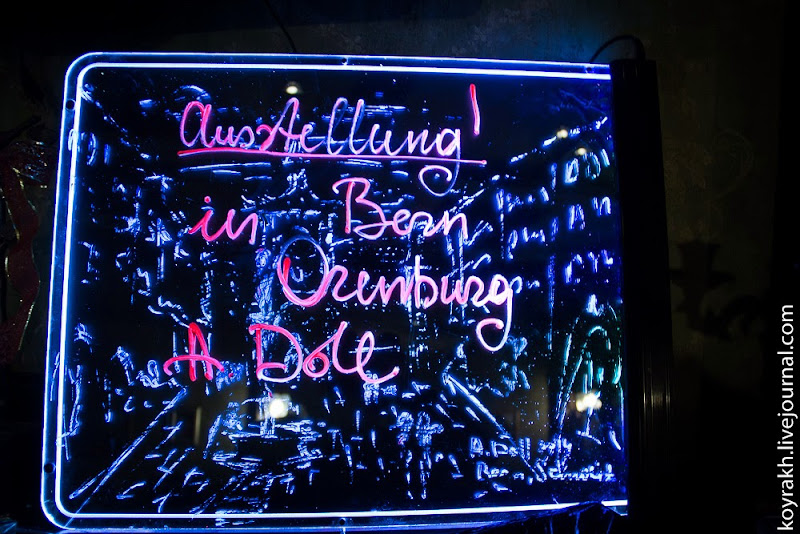 Ausstellung!
in Bern
Orenburg
A. Doll
A. Doll
Bern, Schweiz
koyrakh.livejournal.com